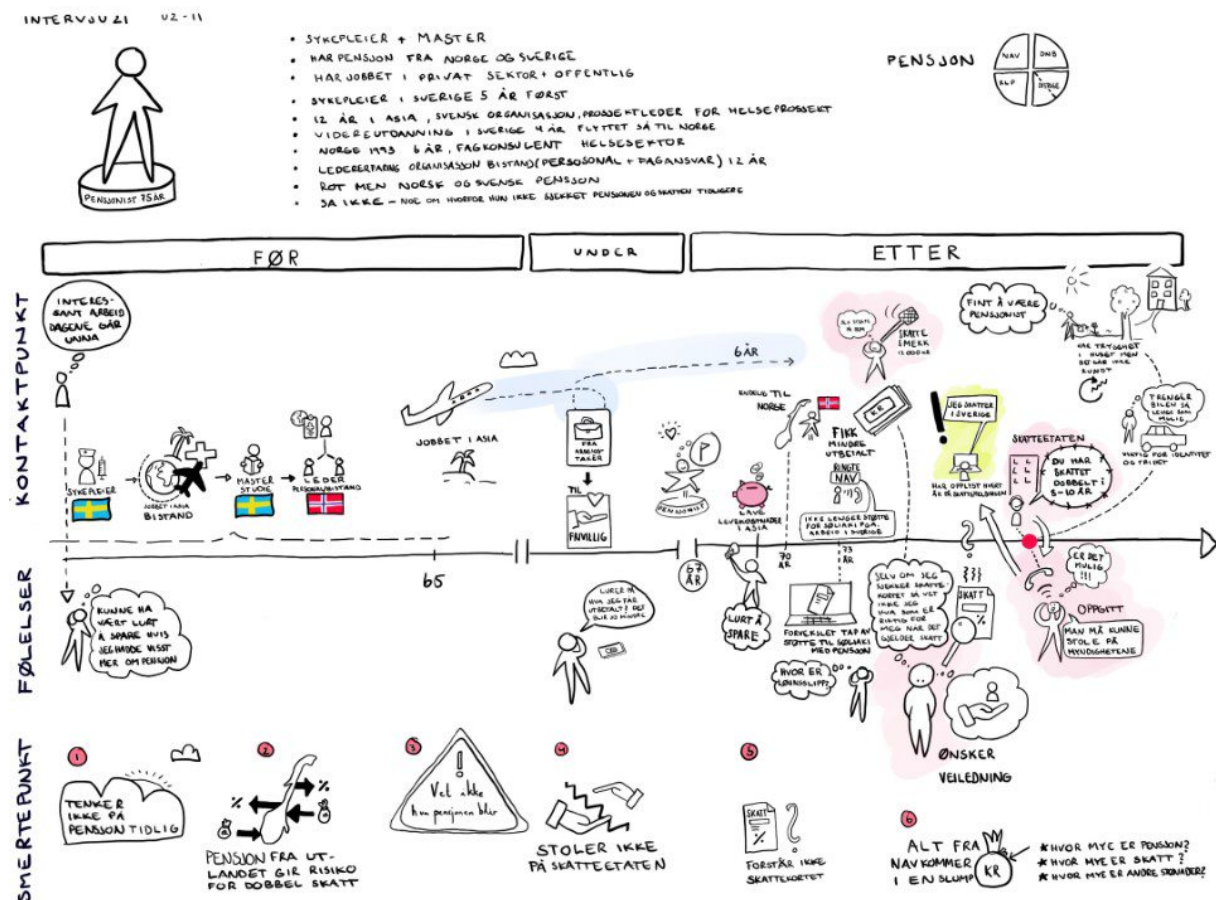 INTERVJU 21 U2-11
• SYKEPLEIER + MASTER
• HAR PENSJON FRA NORGE OG SVERIGE
• HAR JOBBET I PRIVAT SEKTOR + OFFENTLIG
• SYKEPLEIER I SVERIGE 5 ÅR FØRST
• 12 ÅR I ASIA, SVENSK ORGANISASJON, PROSJEKTLEDER FOR HELSEPROSJEKT
• VIDEREUTDANNING I SVERIGE 4 ÅR FLYTTET SÅ TIL NORGE
• NORGE 1993 6 ÅR, FAGKONSULENT HELSESEKTOR
• LEDERERFARING ORGANISASJON BISTAND (PERSOSONAL + FAGANSVAR) 12 ÅR
• ROT MEN NORSK OG SVENSK PENSJON
• SA IKKE – NOE OM HVORFOR HUN IKKE SJEKKET PENSJONEN OG SKATTEN TIDLIGERE
PENSJONIST 75 ÅR
PENSJON
NAV
DNB
KLP
SVERIGE
FØR
UNDER
ETTER
KONTAKTPUNKT
INTERES-
SANT ARBEID
DAGENE GÅR
UNNA
SYKEPLEIER
JOBBET I ASIA
BISTAND
MASTER
STUDIE
LEDER
PERSONAL/BISTAND
JOBBET I ASIA
6 ÅR
FRA
ARBEIDS
TAKER
TIL
FRIVILLIG
P
PENSJONIST
LAVE
LEVEKOSTNADER
I ASIA
ENDELIG TIL
NORGE
SKATTE
SMEKK
KR
FIKK
MINDRE
UTBETALT
RINGTE
NAV
IKKE LENGER STØTTE
FOR SØLIAKI PGA.
ARBEID I SVERIGE
FINT Å VÆRE
PENSJONIST
HAR TRYGGHET
I HUSET MEN
DET GÅR IKKE
RUNDT
JEG SKATTER
I SVERIGE
HAR OPPLYST HVERT
ÅR PÅ SKATTEMELDINGEN
SKATTEETATEN
DU HAR
SKATTET
DOBBELT I
5-10 ÅR
TRENGER
BILEN SÅ
LENGE SOM
MULIG
VIKTIG FOR IDENTITET
OG FRIHET
65
67
ÅR
70
ÅR
73
ÅR
FØLELSER
KUNNE HA
VÆRT LURT
Å SPARE HVIS
JEG HADDE VISST
MER OM PENSJON
LURER PÅ
HVA JEG FÅR
UTBETALT? DET
BLIR JO MINDRE
LURT Å
SPARE
FORVEKSLET TAP AV
STØTTE TIL SØLIAKI
MED PENSJON
HVOR ER
LØNNSSLIPP?
SELV OM JEG
SJEKKER SKATTE-
KORTET SÅ VET
IKKE JEG
HVA SOM ER
RIKTIG FOR
MEG NÅR DET
GJELDER SKATT
SKATT
ØNSKER
VEILEDNING
ER DET
MULIG
!!!
OPPGITT
MAN MÅ KUNNE
STOLE PÅ
MYNDIGHETENE
SMERTEPUNKT
1
TENKER
IKKE PÅ
PENSJON TIDLIG
2
%
%
PENSJON FRA UT-
LANDET GIR RISIKO
FOR DOBBEL SKATT
3
!
Vet ikke
hva pensjonen blir
4
STOLER IKKE
PÅ SKATTEETATEN
5
SKATT
%
?
FORSTÅR IKKE
SKATTEKORTET
6
ALT FRA
NAV KOMMER
I EN SLUMP
KR
* HVOR MYE ER PENSJON?
* HVOR MYE ER SKATT?
* HVOR MYE ER ANDRE STØNADER?